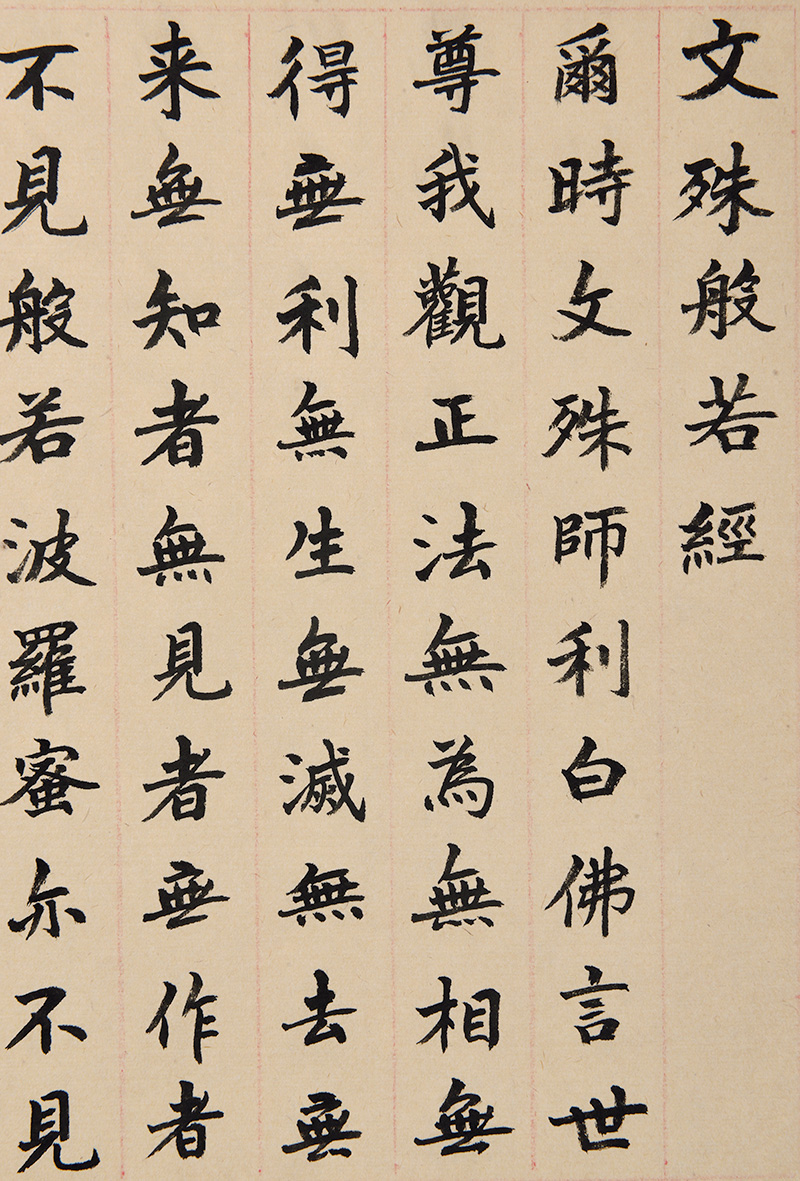 文殊般若經
爾時文殊師利白佛言世
尊我觀正法無為無相無
得無利無生無滅無去無
来無知者無見者無作者
不見般若波羅蜜亦不見